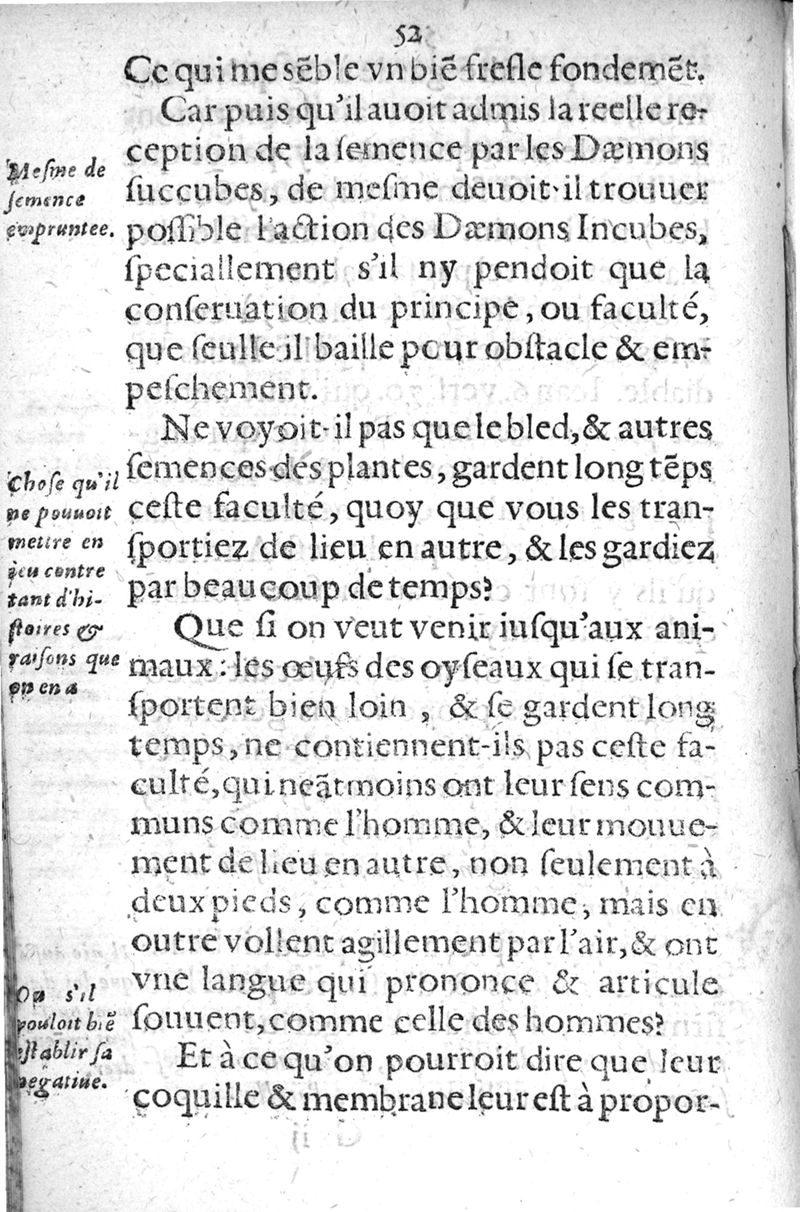 52
Ce qui me sẽble vn biẽ fresle fondemẽt.
Car puis qu'il auoit admis la reelle re-
ception de la ſemence par les Dæmons
ſuccubes, de meſme deuoit-il trouuer
poſſible l'action des Dæmons Incubes,
ſpeciallement s'il ny pendoit que la
conſeruation du principe, ou faculté,
que ſeulle il baille pour obſtacle & em-
peſchement.
Meſme de
ſemence
empruntee.
Ne voyoit-il pas que le bled, & autres
ſemences des plantes, gardent long tẽps
ceſte faculté, quoy que vous les tran-
ſportiez de lieu en autre, & les gardiez
par beaucoup de temps?
Choſe qu'il
ne pouuoit
mettre en
jeu contre
tant d'hi-
ſtoires &
raiſons que
on en a
Que ſi on veut venir iuſqu'aux ani-
maux: les œufs des oyſeaux qui ſe tran-
ſportent bien loin, & ſe gardent long
temps, ne contiennent-ils pas ceſte fa-
culté, qui neãtmoins ont leur ſens com-
muns comme l'homme, & leur mouue-
ment de lieu en autre, non ſeulement à
deux pieds, comme l'homme, mais en
outre vollent agillement par l'air, & ont
vne langue qui prononce & articule
ſouuent, comme celle des hommes?
Et à ce qu'on pourroit dire que leur
coquille & membrane leur eſt à propor-
On s'il
vouloit biẽ
eſtablir ſa
negatiue.